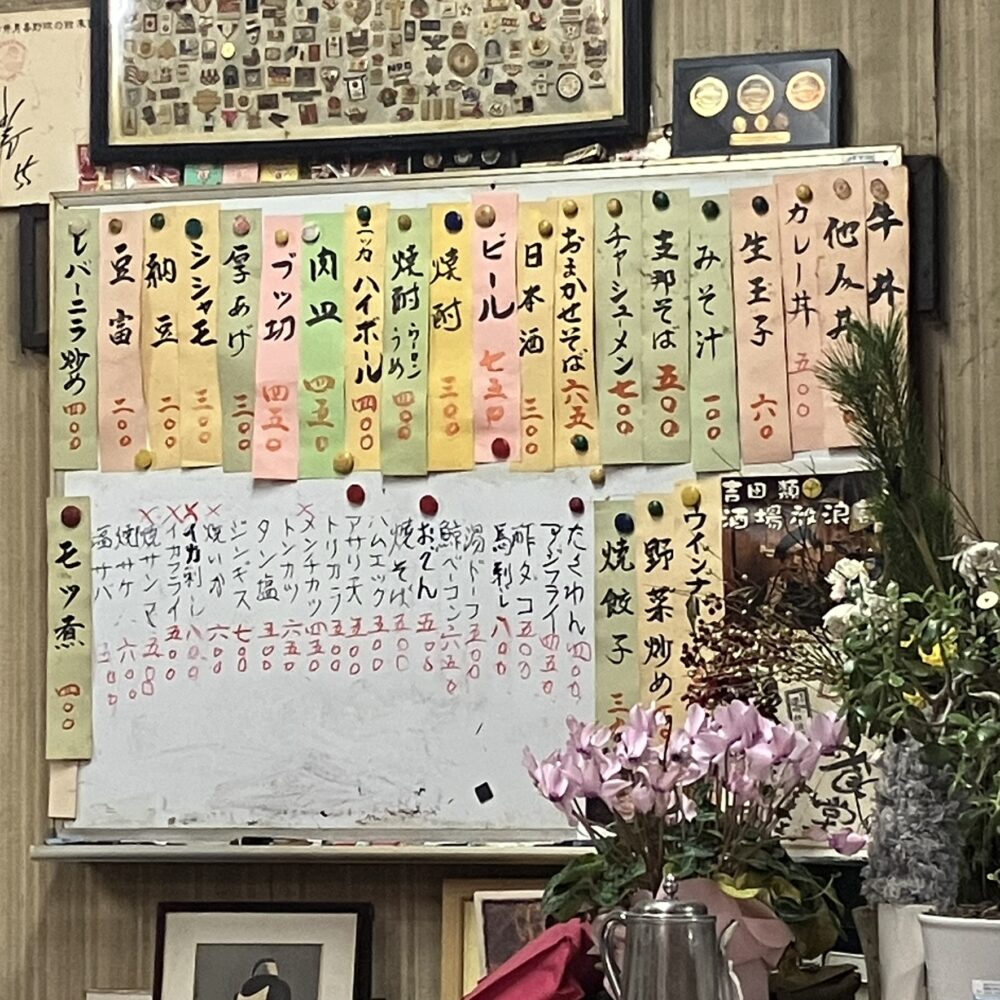 牛丼
他人丼
カレー丼 五〇〇
生玉子 六〇
みそ汁 一〇〇
支那そば 五〇〇
チャーシューメン 七〇〇
おまかせそば 六五〇
日本酒 三〇〇
ビール 七五〇
焼酎 三〇〇
焼酎 ウーロン うめ 四〇〇
ニッカ ハイボール 四〇〇
肉皿 四五〇
ブツ切 四五〇
厚あげ 三〇〇
シシャモ 三〇〇
納豆 二〇〇
豆富 二〇〇
レバーニラ炒め 四〇〇
吉田類
酒場放浪記
ウインナー
野菜炒め
焼餃子
たくわん 四〇〇
アジフライ 四五〇
酢ダコ 五〇〇
馬刺し 八〇〇
湯ドーフ 五〇〇
鯨ベーコン 六五〇
おでん 五〇〇
焼そば 五〇〇
ハムエッグ 五〇〇
アサリ天 五五〇
トリカラ 五五〇
メンチカツ 四五〇
トンカツ 六五〇
タン塩 五〇〇
ジンギス 七〇〇
焼いか 六〇〇
イカ刺し 八〇〇
イカフライ 五〇〇
焼サンマ 五五〇
焼サケ 六〇〇
塩サバ 五五〇
モツ煮 四〇〇